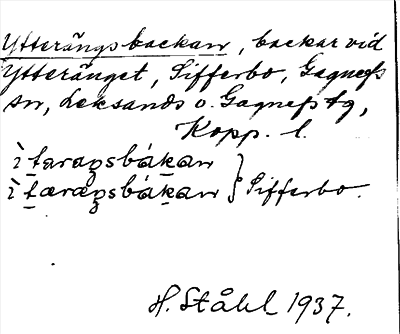 Ytterängsbackan, backar vid
Ytteränget, Sifferbo, Gagnefs
sn, Leksands o. Gagnefs tg,
Kopp. l.
ì taraŋsbákan
ì tæraŋsbákan } Sifferbo.
H. Ståhl 1937.